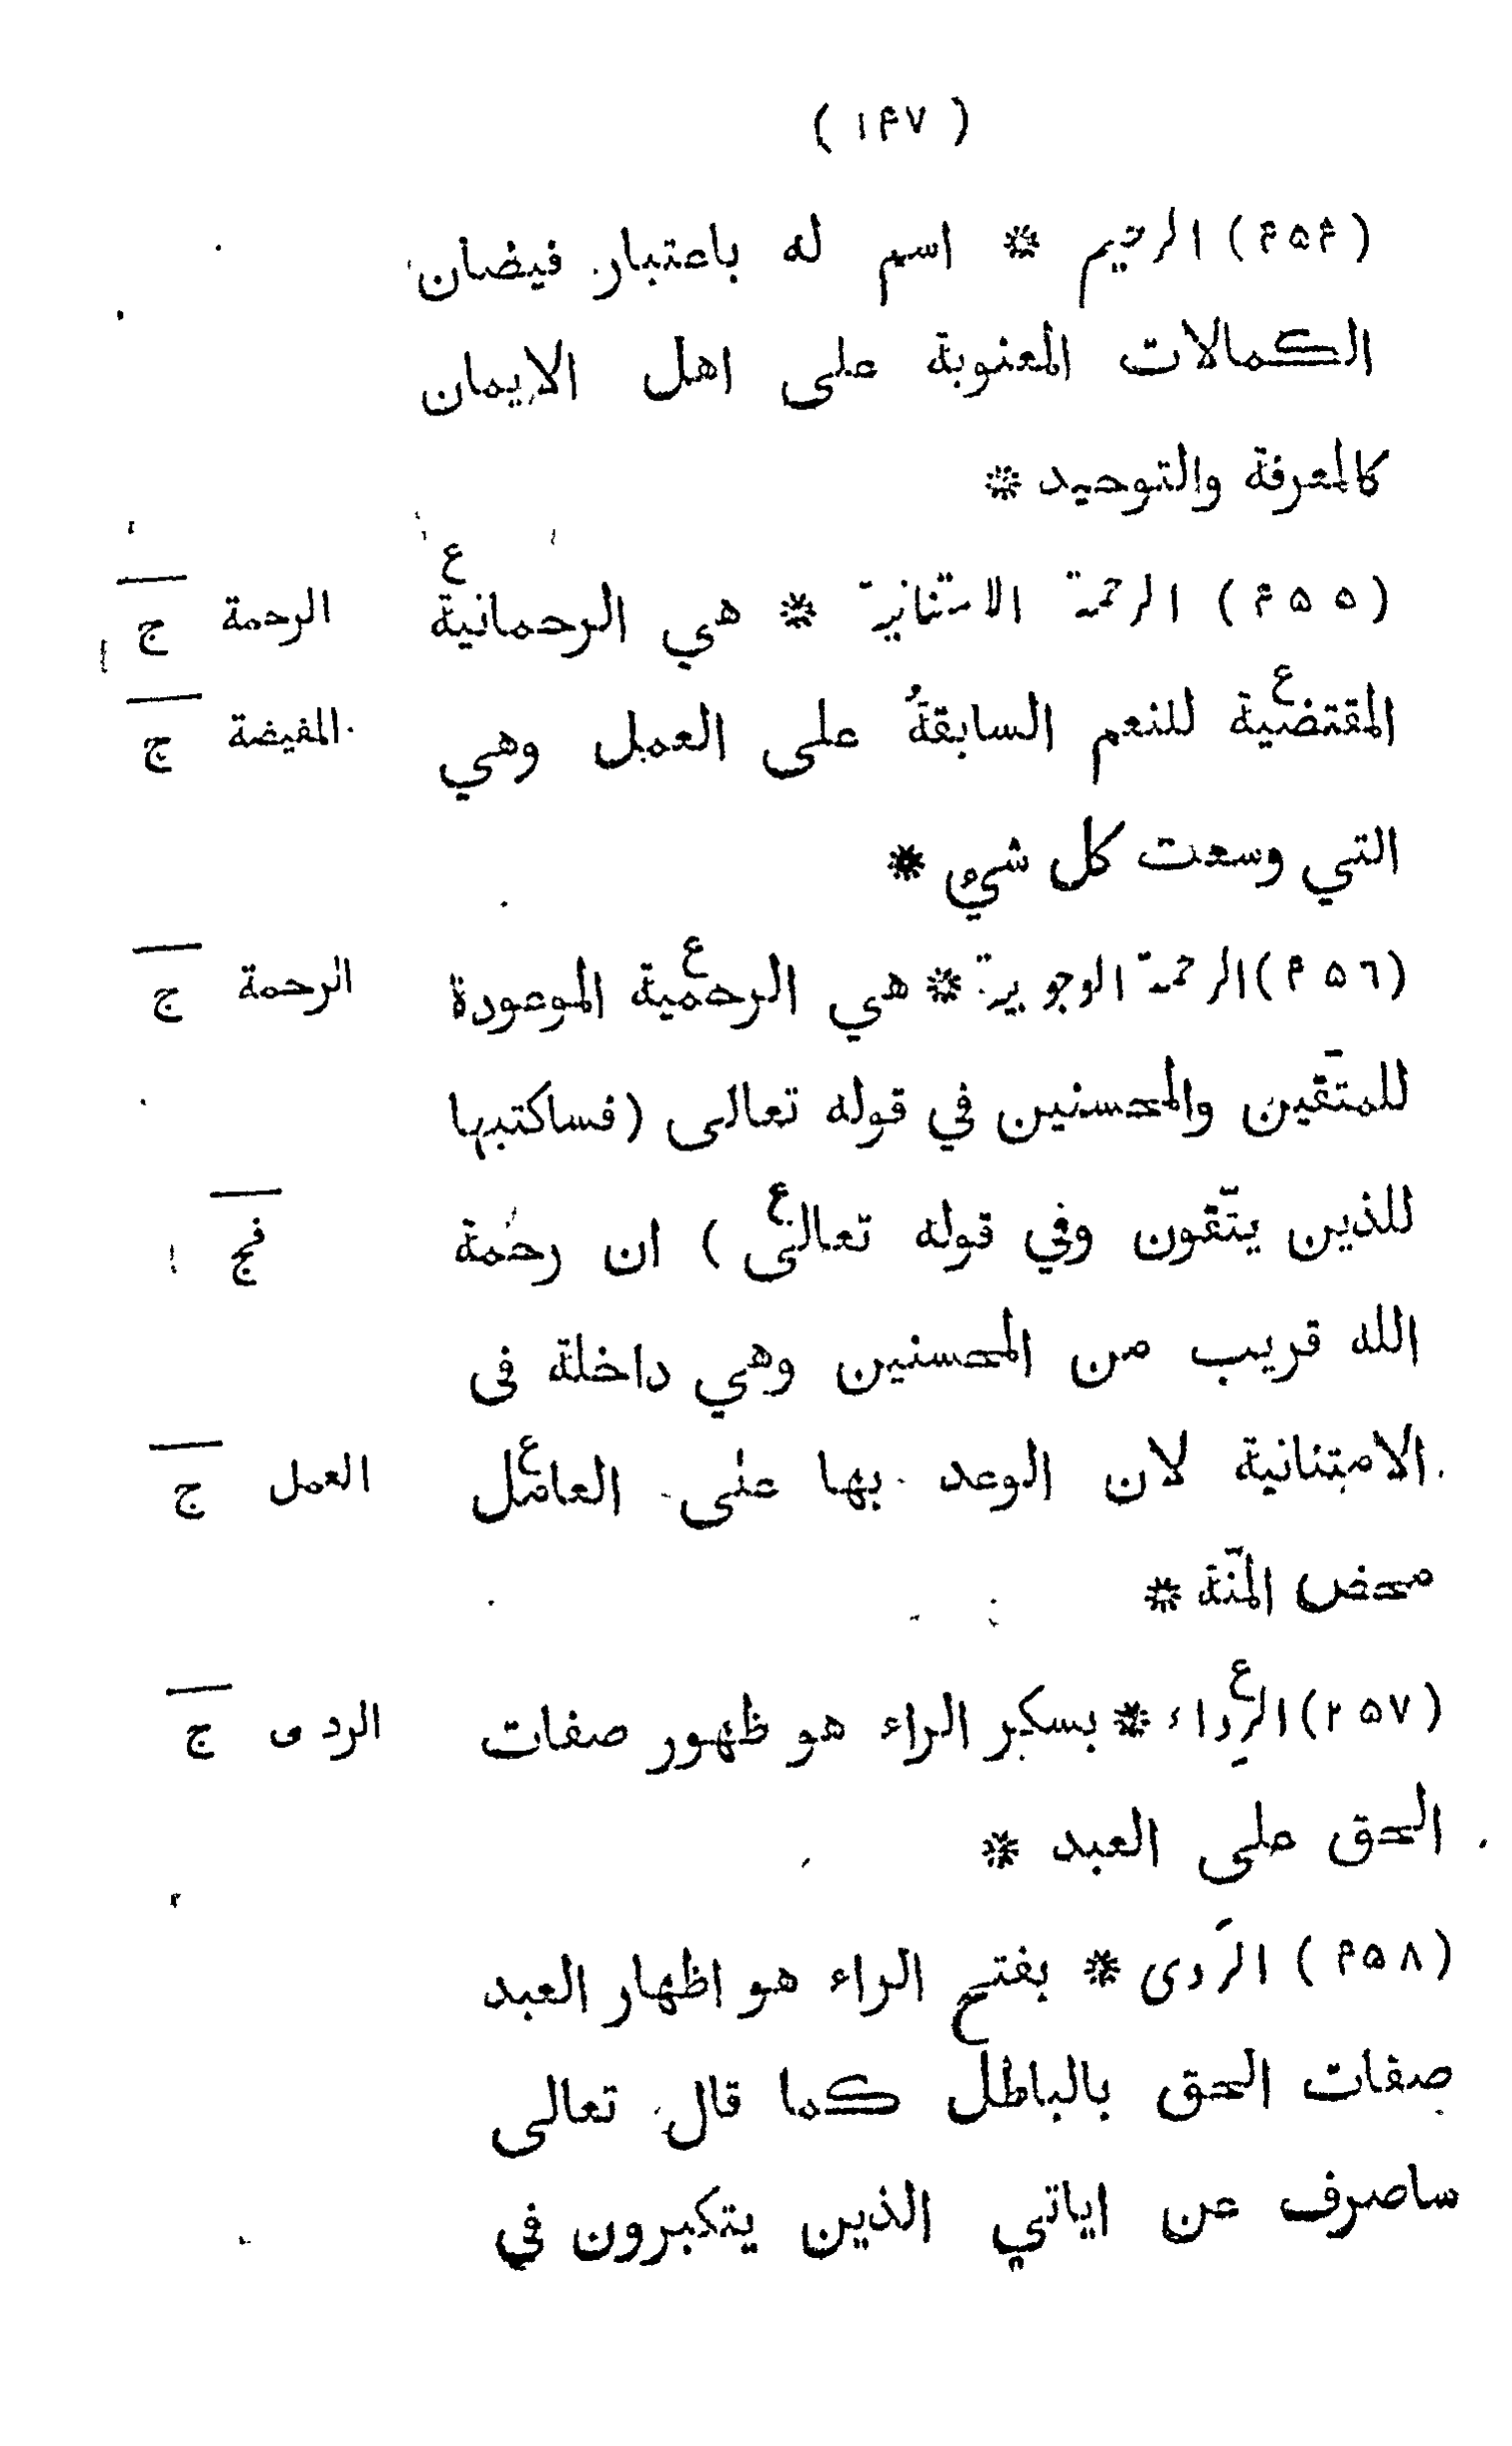 ( ۱۴۷ )
(۴۵۴) الرحيم * اسم له باعتبار فيضان
الكمالات المعنوية على اهل الايمان
كالمعرفة والتوحيد *
(۴۵۵) الرحمة الامتنانية * هي الرحمانيةع الرحمة ج
المقتضيةع للنعم السابقةُ على العمل وهي المفيضة ج
التي وسعت كل شيء *
(۴۵۶) الرحمة الوجوبية * هي الرحميةع الموعودة الرحمة ج
للمتّقين والمحسنين في قوله تعالى (فساكتبها
للذين يتّقون وفي قوله تعالىع ) ان رحمة فج
الله قريب من المحسنين وهي داخلة فى
الامتنانية لان الوعد بها على العاملع العمل ج
محض المنّة *
(۲۵۷) الرِداءع * بسكر الراء هو ظهور صفات الردى ج
الحق على العبد *
(۴۵۸) الرَدى * بفتح الراء هو اظهار العبد
صفات الحق بالباطل كما قال تعالى
ساصرف عن اياتي الذين يتكبرون في